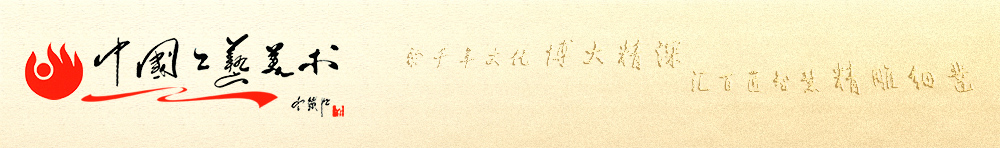 中國工藝美术
千年文化 博大精深
汇百匠智慧 精雕细凿